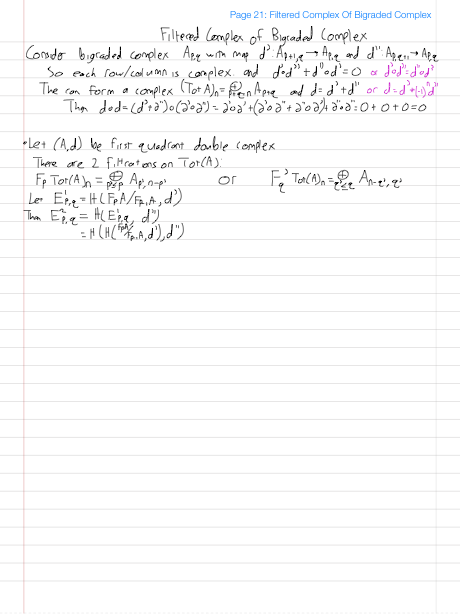 Page 21: Filtered Complex Of Bigraded Complex
Filtered Complex of Bigraded Complex
Consider bigraded complex A_{p,q} with map d': A_{p+1,q} → A_{p,q} and d'': A_{p,q+1} → A_{p,q}
So each row/column is complex. and d'∘d'' + d''∘d' = 0 or d'∘d'' = d''∘d'
The can form a complex (Tot A)_n = ⊕_{p+q=n} A_{p,q} and d = d' + d'' or d = d' + (-1)^p d''
Then d∘d = (∂'+∂'')∘(∂'+∂'') = ∂'∘∂' + (∂'∘∂'' + ∂''∘∂') + ∂''∘∂'' = 0 + 0 + 0 = 0
• Let (A,d) be first quadrant double complex
There are 2 filtrations on Tot(A):
F_p Tot(A)_n = ⊕_{p'≤p} A_{p', n-p'} or F_q' Tot(A)_n = ⊕_{q'≤q} A_{n-q', q'}
Let E^1_{p,q} = H(F_p A/F_{p-1} A, d')
Then E^2_{p,q} = H(E^1_{p,q}, d'')
= H(H(F_p A/F_{p-1} A, d'), d'')